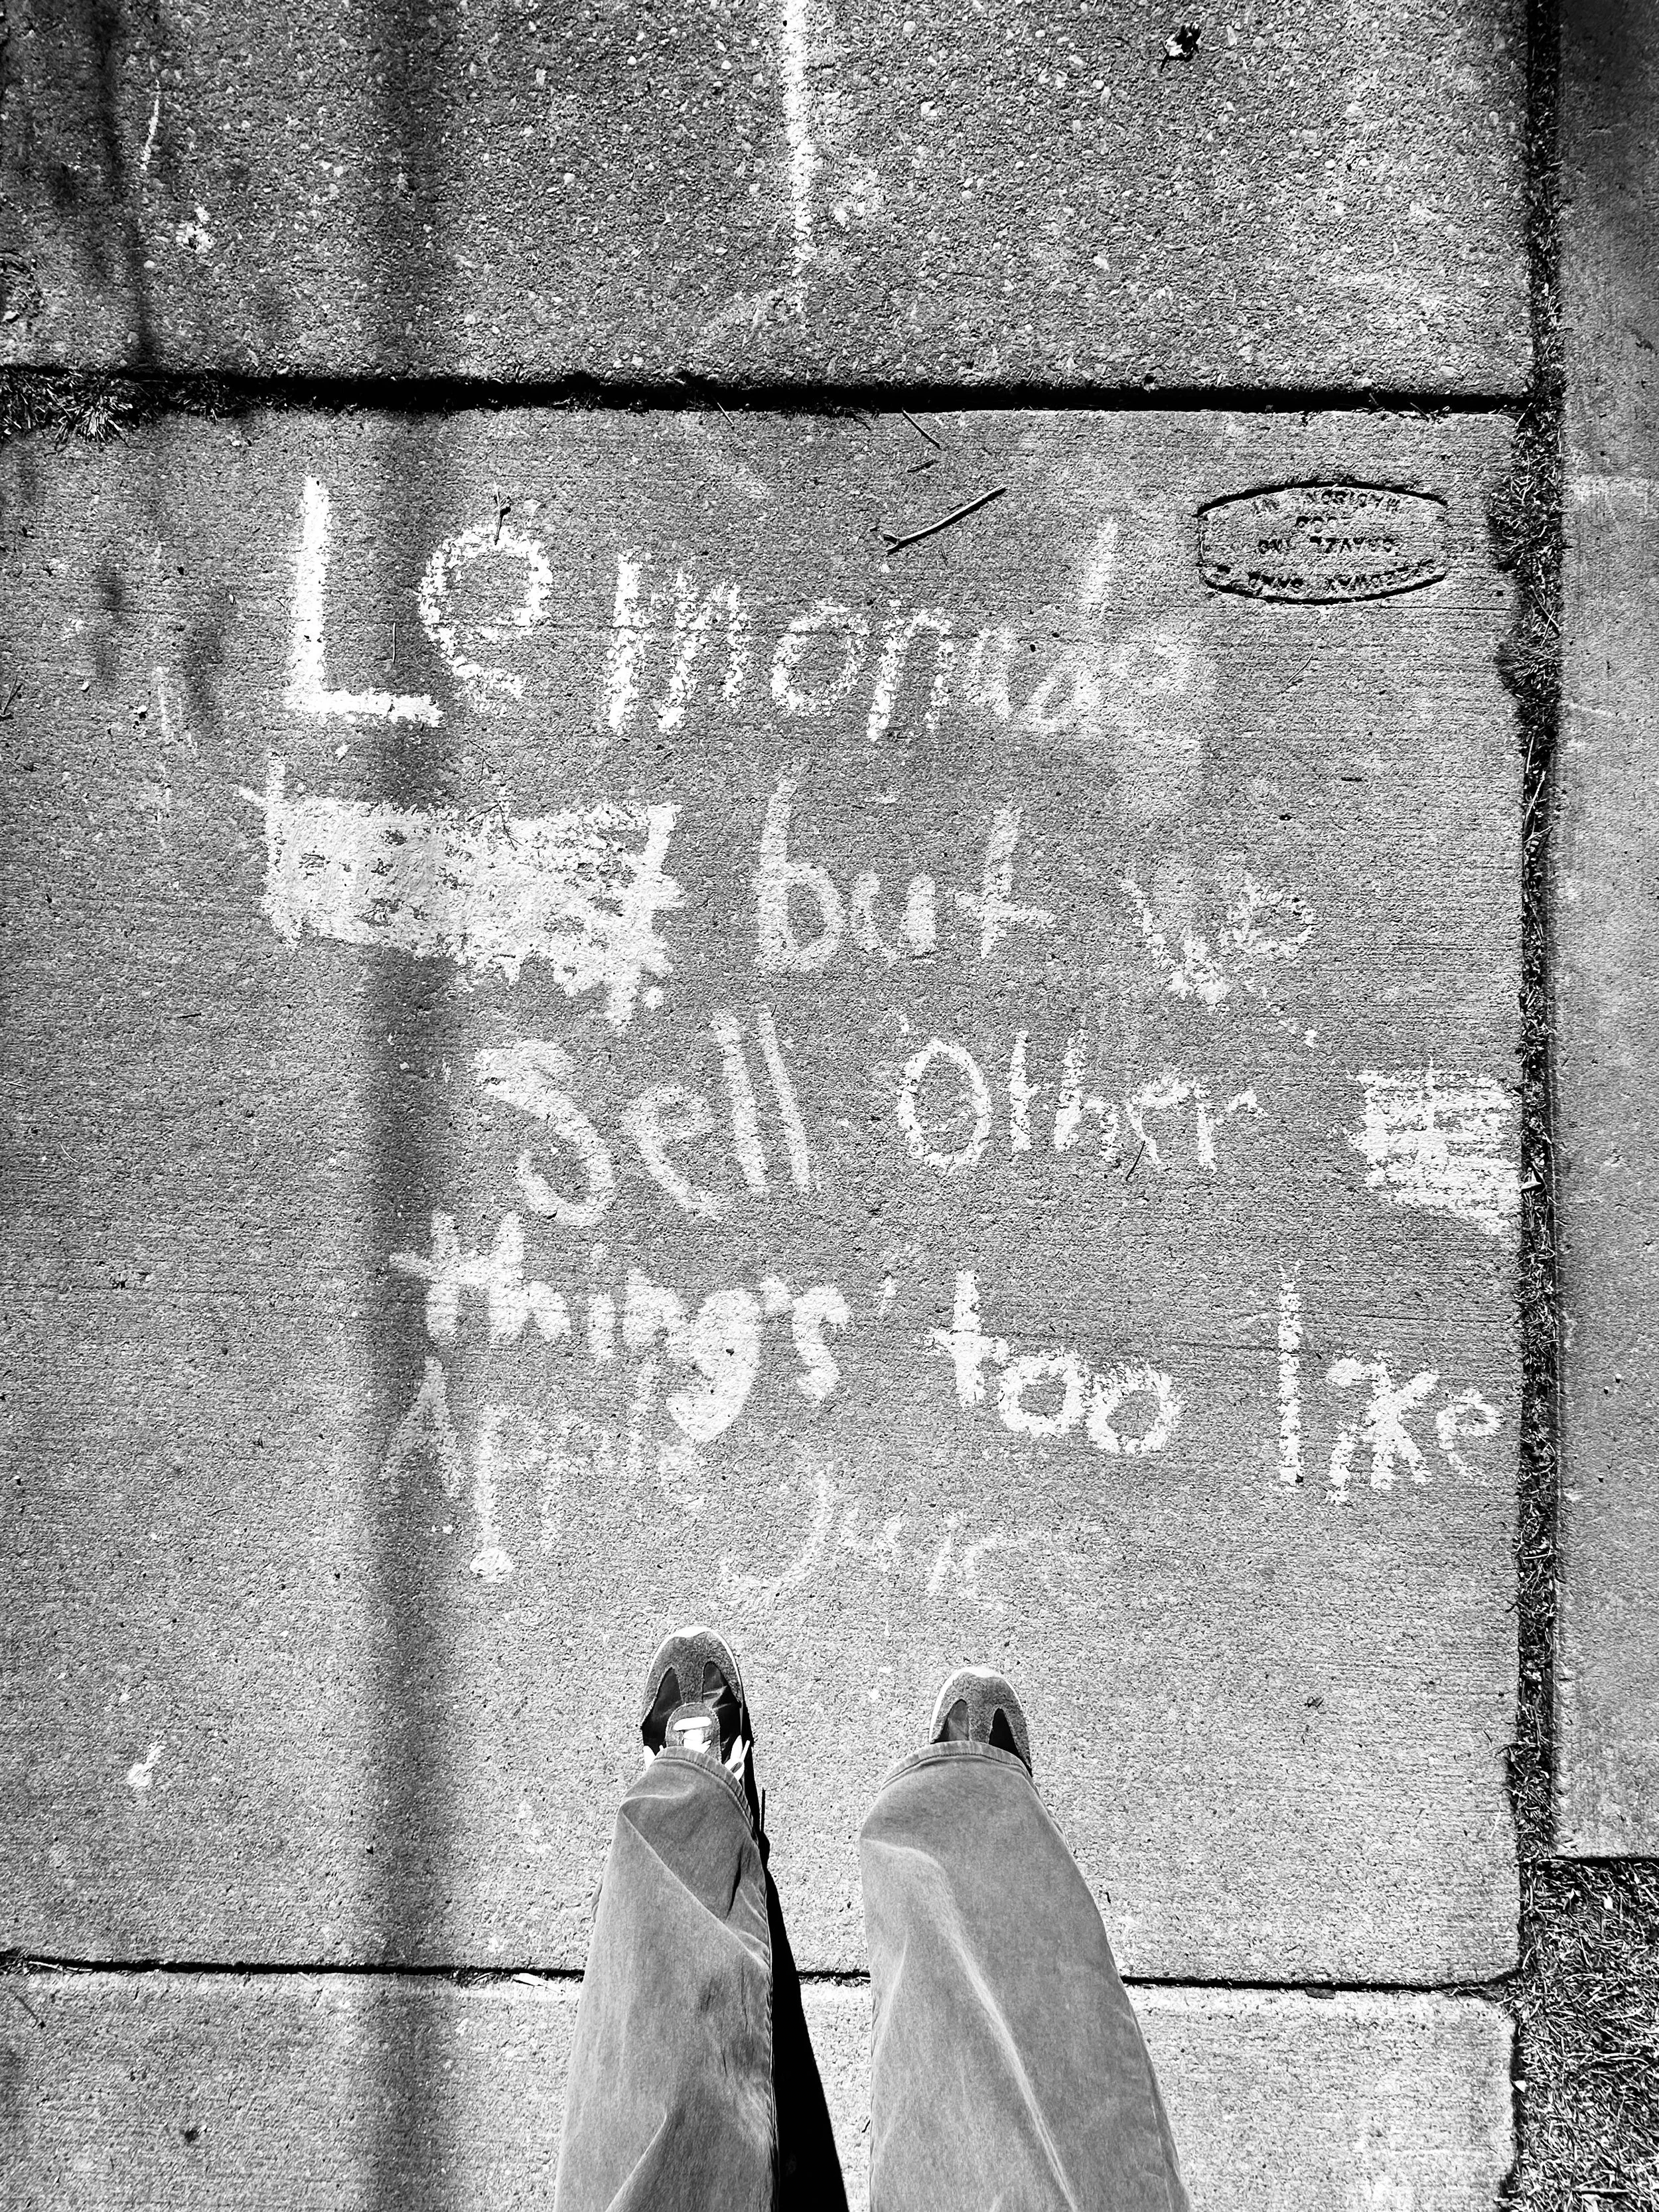 Lemonade
but we
Sell Other
things too like
Apple Juic